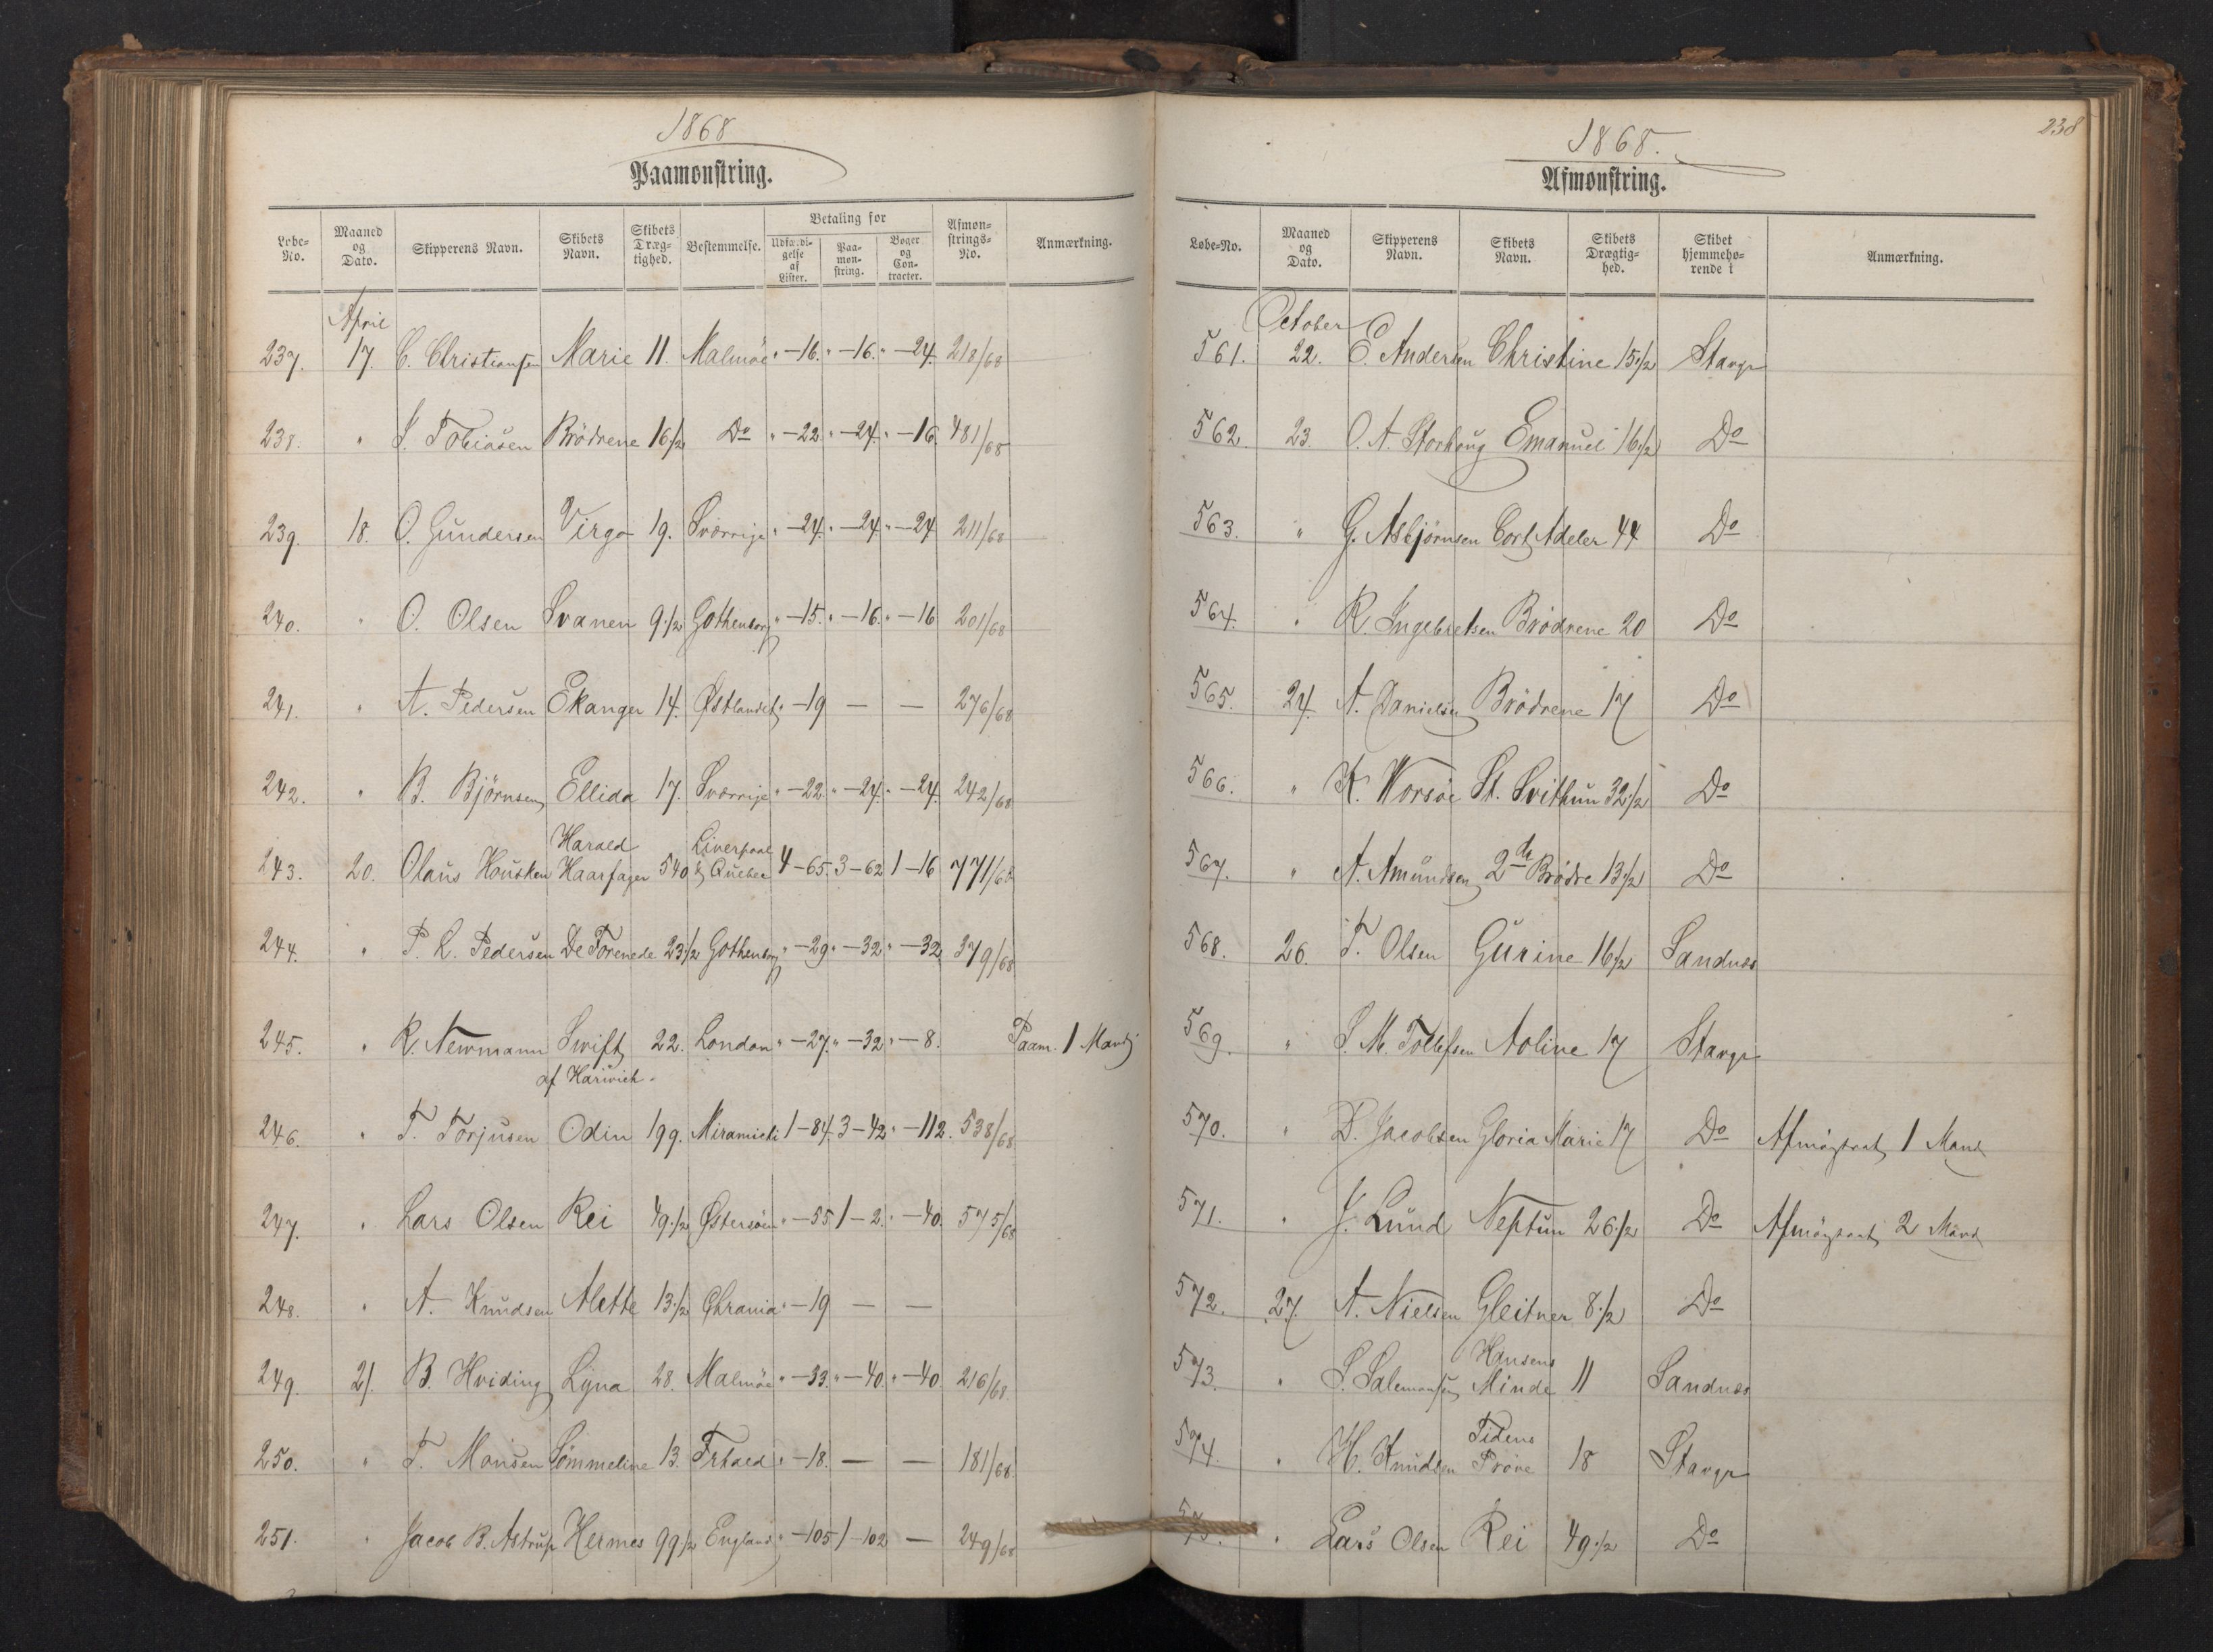 1868
Paamønstring.
Løbe-No. Maaned og Dato. Skipperens Navn. Skibets Navn. Skibets Dræg-tighed. Bestemmelse. Betaling for Udfærdi-gelse af Lister. Paa-møn-string. Bøger og Con-tracter. Afmøn-strings-No. Anmærkning.
April
237. 17. C. Christiansen Marie 11. Malmöe " - 16. " - 16. " - 24. 218/68
238. " J. Tobiasen Brödrene 16 1/2 Do " - 22. " - 24. " - 16 481/68
239. 18. O. Gundersen Virgo 19. Sværrige " - 24. " - 24. " - 24 211/68
240. " O. Olsen Svanen 9 1/2 Gothenborg " - 15. " - 16. " - 16 201/68
241. " A. Pedersen Ekanger 14. Østlandet " - 19 — — 276/68
242. " B. Björnsen Ellida 17. Sværrige " - 22. " - 24. " - 24. 242/68
243. 20. Olaus Housken Harald Haarfager 540 Liverpool & Quebec 4 - 65. 3 - 62 1 - 16 771/68
244. " P. L. Pedersen De Forenede 23 1/2 Gothenborg " - 29 " - 32 " - 32. 379/68
245. " R. Newmann Swift 22. London " - 27. " - 32 " - 8. Paam. 1 Mand
af Harwich.
246. " T. Torjusen Odin 199. Miramichi 1 - 84. 3 - 42 " - 112. 538/68
247. " Lars Olsen Rei 49 1/2 Østersöen " - 55 1 - 2. " - 40. 575/68
248. " A. Knudsen Alette 13 1/2 Chrania " - 19 — —
249. 21. B. Hviding Lyna 28. Malmöe " - 33. " - 40. " - 40 216/68.
250. " T. Monsen Sömmeline 13. Frhald " - 18. — — 181/68.
251. " Jacob B. Astrup Hermes 99 1/2 England " - 105 1 - 102 — 249/68
238
1868.
Afmønstring.
Løbe-No. Maaned og Dato. Skipperens Navn. Skibets Navn. Skibets Drægtig-hed. Skibet hjemmehø-rende i Anmærkning.
October
561. 22. E. Andersen Christine 15 1/2 Stavgr
562. 23. O. A. Storhoug Emanuel 16 1/2 Do
563. " G. Asbjörnsen Cort Adeler 44 Do
564. " R. Ingebretsen Brödrene 20 Do
565. 24. A. Danielsen Brödrene 17 Do
566. " K. Worsöe St. Svithun 32 1/2 Do
567. " A. Amundsen 2de Brödre 13 1/2 Do
568. 26. T. Olsen Gurine 16 1/2 Sandnæs
569. " S. M. Tollefsen Aoline 17 Stavgr
570. " D. Jacobsen Gloria Marie 17 Do Afmönstrat 1 Mand
571. " J. Lund Neptun 26 1/2 Do Afmönstrat 2 Mand
572. 27. A. Nielsen Gleitner 8 1/2 Do
573. " S. Salemonsen Hansens Minde 11 Sandnæs
574. " H. Knudsen Tidens Pröve 18 Stavgr
575. " Lars Olsen Rei 49 1/2 Do